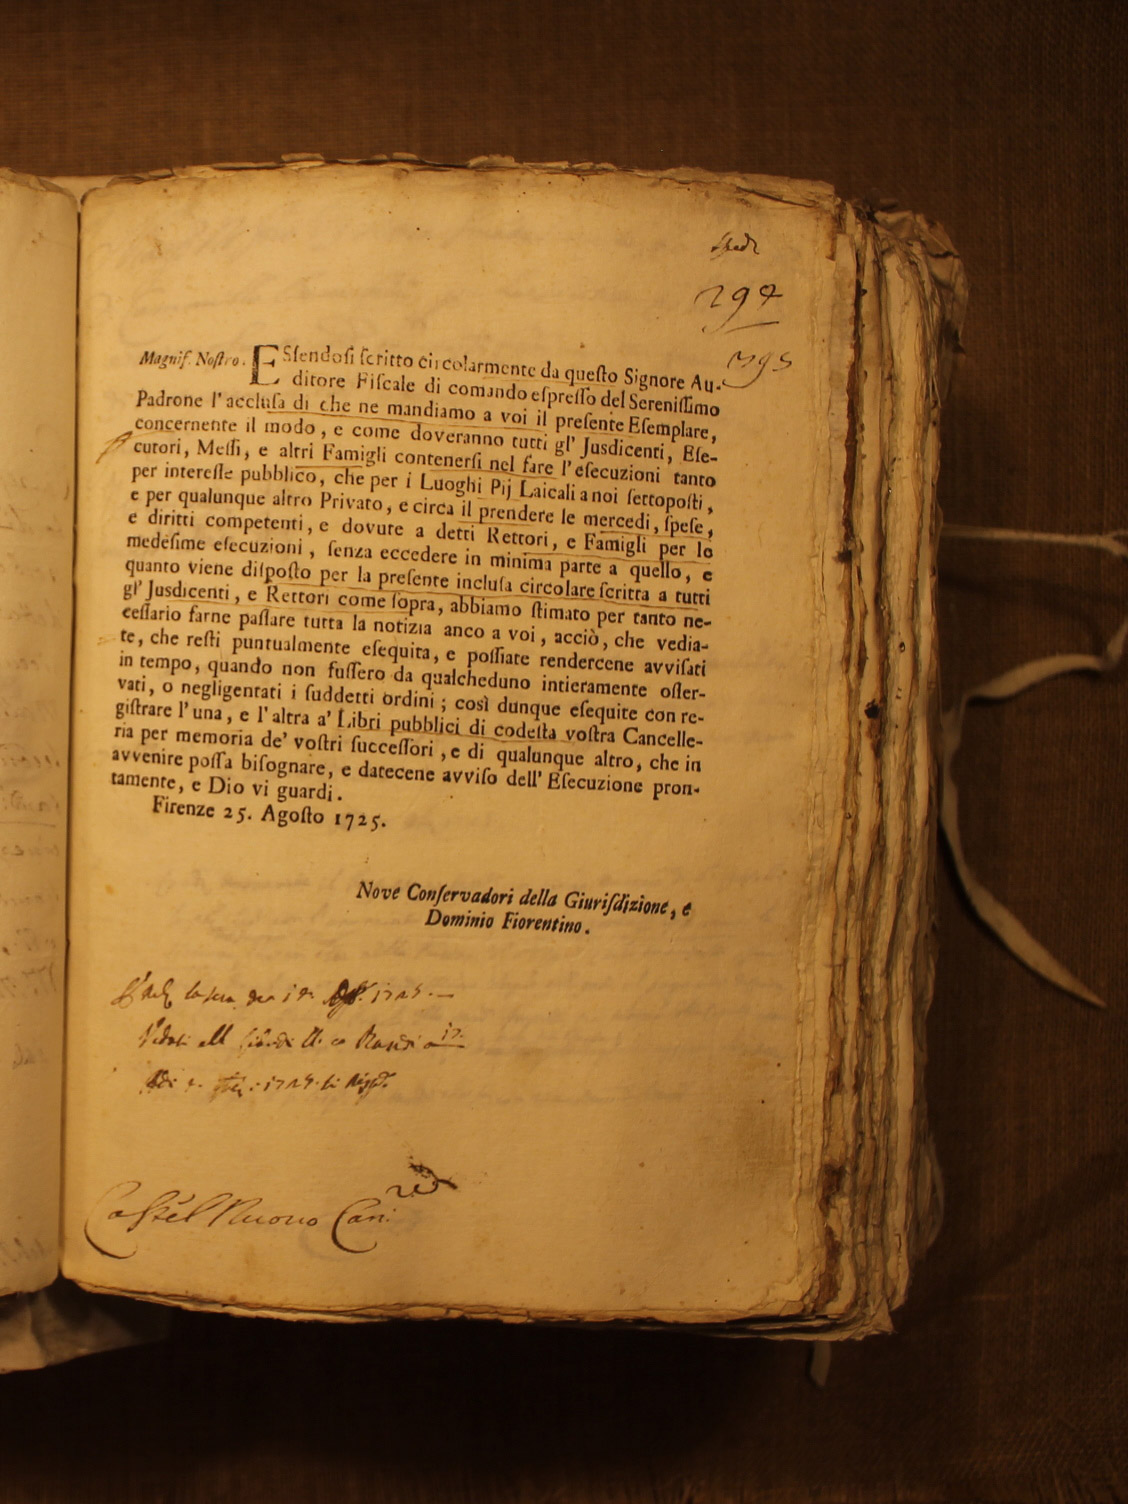 294
395
Magnif. Noſtro. ESſendoſi ſcritto circolarmente da queſto Signore Au-
ditore Fiſcale di comando eſpreſſo del Sereniſſimo
Padrone l'accluſa di che ne mandiamo a voi il preſente Eſemplare,
concernente il modo, e come doveranno tutti gl' Jusdicenti, Eſe-
cutori, Meſſi, e altri Famigli contenerſi nel fare l'eſecuzioni tanto
per intereſſe pubblico, che per i Luoghi Pij Laicali a noi ſottopoſti,
e per qualunque altro Privato, e circa il prendere le mercedi, ſpeſe,
e diritti competenti, e dovute a detti Rettori, e Famigli per lo
medeſime eſecuzioni, ſenza eccedere in minima parte a quello, e
quanto viene diſpoſto per la preſente incluſa circolare ſcritta a tutti
gl' Jusdicenti, e Rettori come ſopra, abbiamo ſtimato per tanto ne-
ceſſario farne paſſare tutta la notizia anco a voi, acciò, che vedia-
te, che reſti puntualmente eſequita, e poſſiate rendercene avviſati
in tempo, quando non fuſſero da qualcheduno intieramente oſſer-
vati, o negligentati i ſuddetti ordini; così dunque eſequite con re-
giſtrare l'una, e l'altra a' Libri pubblici di codeſta voſtra Cancelle-
ria per memoria de' voſtri ſucceſſori, e di qualunque altro, che in
avvenire poſſa biſognare, e datecene avviſo dell' Eſecuzione pron-
tamente, e Dio vi guardi.
Firenze 25. Agoſto 1725.
Nove Conſervadori della Giuriſdizione, e
Dominio Fiorentino.
Castel Nuovo